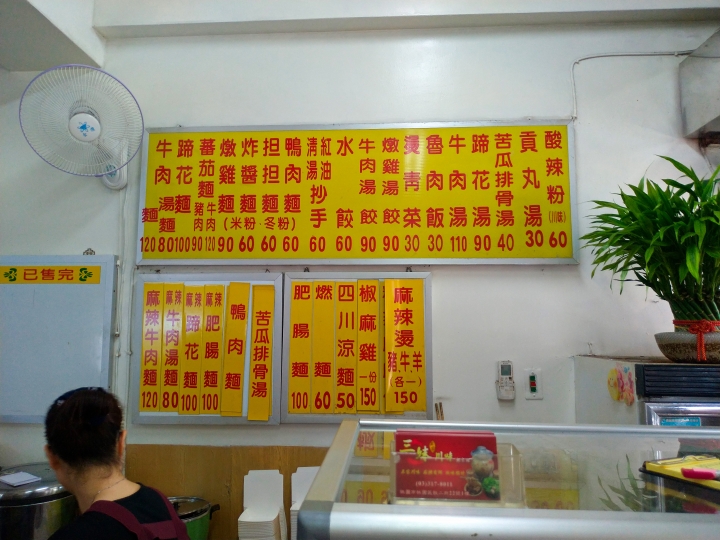 牛肉麵 120
牛肉湯麵 80
蹄花麵 100
蕃茄麵 豬肉 90 牛肉 120
燉雞麵 90
炸醬麵 60
担担麵 60
鴨肉麵 60
(米粉、冬粉)
清湯 紅油 抄手 60
水餃 60
牛肉湯餃 90
燉雞湯餃 90
燙青菜 30
魯肉飯 30
牛肉湯 110
蹄花湯 90
苦瓜排骨湯 40
貢丸湯 30
酸辣粉(川味) 60
已售完
麻辣牛肉麵 120
麻辣牛肉湯麵 80
麻辣蹄花麵 100
麻辣肥腸麵 100
鴨肉麵
苦瓜排骨湯
肥腸麵 100
燃麵 60
四川涼麵 50
椒麻雞 一份 150
麻辣燙 豬、牛、羊(各一) 150
三味